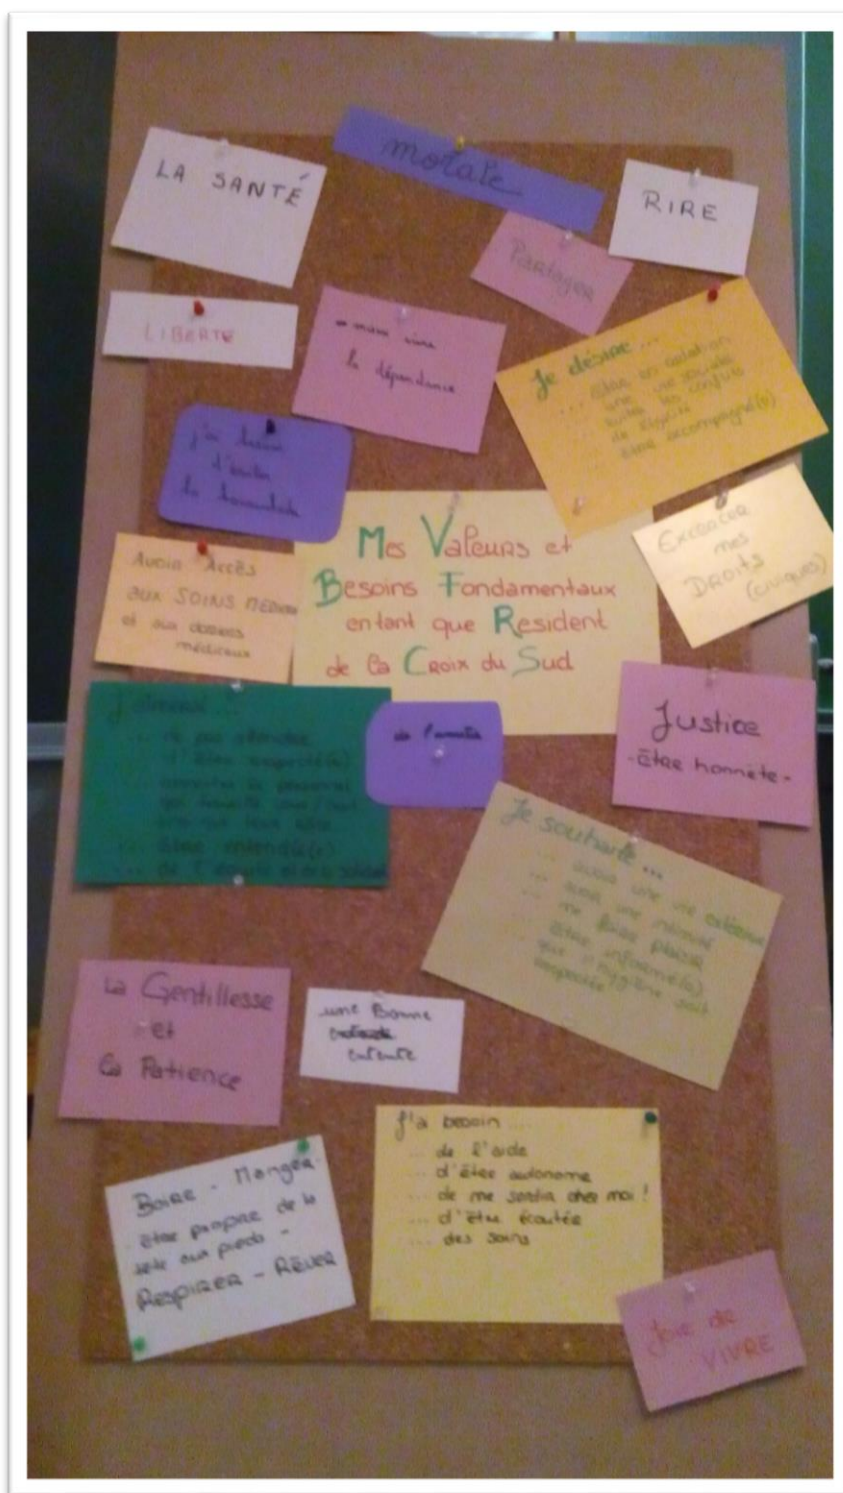 LA SANTÉ
morale
RIRE
Partager
LIBERTÉ
la dépendance
Je désire...
... être en relation
une vie sociale
de l'égalité
être accompagné(e)
j'ai besoin
d'éviter
la
Avoir Accès
aux SOINS MEDICAUX
et aux dossiers
médicaux
Mes Valeurs et
Besoins Fondamentaux
entant que Resident
de la Croix du Sud
EXCERCER
mes
DROITS
(civiques)
... de pas attendre
d'être respecté(e)
le personnel
qui travaille
... être entendu(e)
... de l'écoute et de la
de l'amitié
Justice
-être honnête-
Je souhaite...
... avoir une vie extérieure
... avoir une intimité
... me faire plaisir
... être informé(e)
que l'hygiène soit
respectée
La Gentillesse
et
la Patience
une Bonne
entente
J'ai besoin
... de l'aide
... d'être autonome
... de me sentir chez moi !
... d'être écoutée
... des soins
BOIRE - Manger -
être propre de la
tête aux pieds -
RESPIRER - RÊVER
Joie de
VIVRE